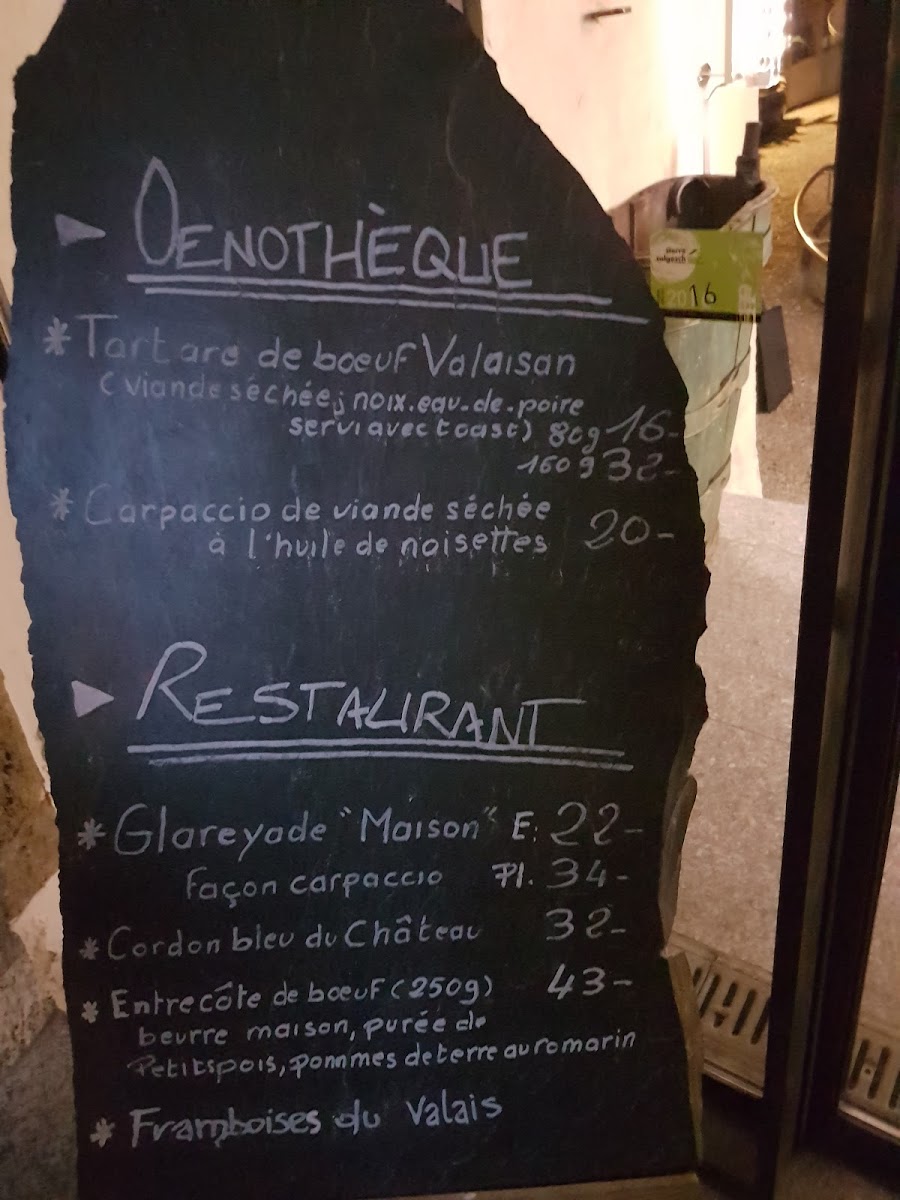 OENOTHÈQUE
* Tartare de bœuf Valaisan
(viande séchée, noix, eau-de-poire
servi avec toast) 80g 16-
160g 32-
* Carpaccio de viande séchée
à l'huile de noisettes 20-
RESTAURANT
* Glareyade "Maison" E: 22-
Façon carpaccio Pl. 34-
* Cordon bleu du Château 32-
* Entrecôte de bœuf (250g) 43-
beurre maison, purée de
Petits pois, pommes de terre au romarin
* Framboises du Valais
salgesch
2016